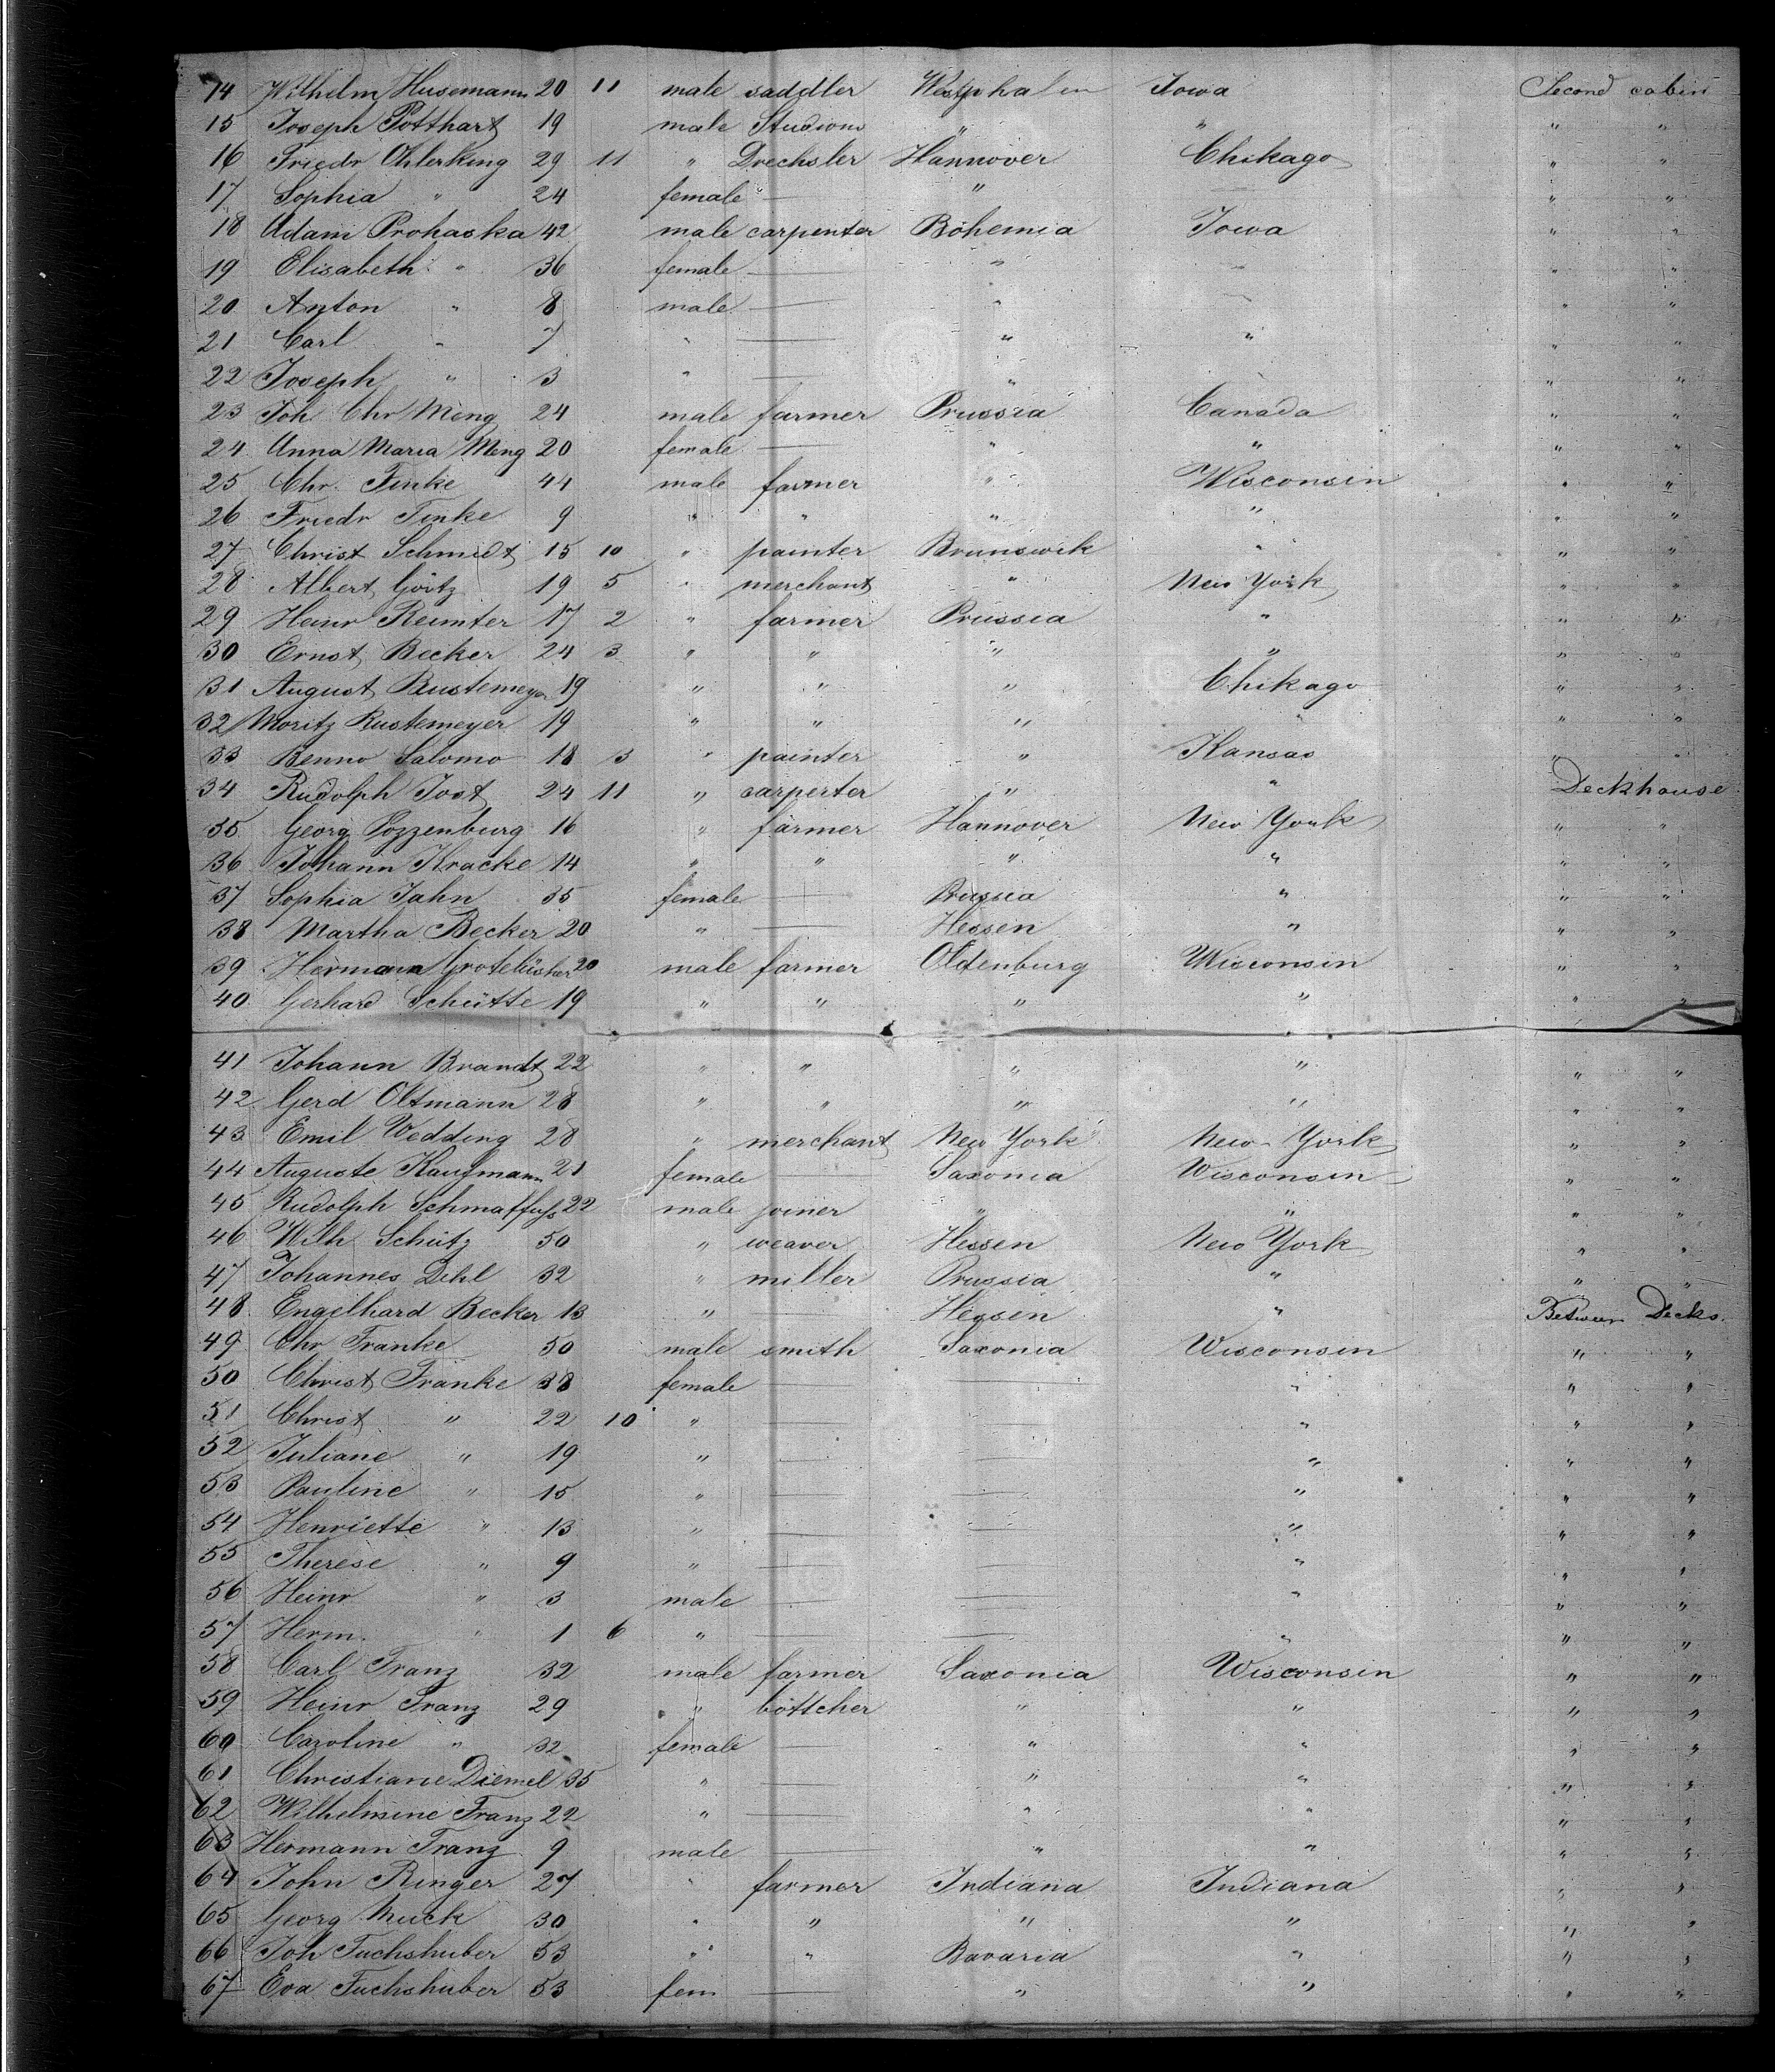 14 Wilhelm Husemann 20 11 male saddler Westphalen Iowa Second cabin
15 Joseph Potthart 19 male Studiom " " " "
16 Friedr Ohlerking 29 11 " Drechsler Hannover Chikago " "
17 Sophia " 24 female — " — " "
18 Adam Prohaska 42 male carpenter Bohemia Iowa " "
19 Elisabeth " 36 female — " " " "
20 Anton " 8 male — " " " "
21 Carl " 7 " — " " " "
22 Joseph " 3 " — " " "
23 Joh Chr Meng 24 male farmer Prussia Canada " "
24 Anna Maria Meng 20 female — " " " "
25 Chr. Finke 44 male farmer " Wisconsin " "
26 Friedr Finke 9 " " " " " "
27 Christ Schmidt 15 10 " painter Brunswik " " "
28 Albert Goitz 19 5 " merchant " New York " "
29 Heinr Reimter 17 2 " farmer Prussia " " "
30 Ernst Becker 24 3 " " " " " "
31 August Rustemeyer 19 " " " Chikago " "
32 Moritz Rustemeyer 19 " " " " " "
33 Benno Salomo 18 3 " painter " Kansas " "
34 Rudolph Jost 24 11 " carperter " " Deckhouse
35 Georg Pozzenburg 16 " farmer Hannover New York " "
36 Johann Kracke 14 " " " " " "
37 Sophia Jahn 35 female — Prussia " " "
38 Martha Becker 20 " — Hessen " " "
39 Hermann Grotelüsher 20 male farmer Oldenburg Wisconsin " "
40 Gerhard Schütte 19 " " " " " "
41 Johann Brandt 22 " " " " " "
42 Gerd Oltmann 28 " " " " " "
43 Emil Wedding 28 " merchant New York New York " "
44 Auguste Kaufmann 21 female — Saxonia Wisconsin " "
45 Rudolph Schmaffuss 22 male joiner " " " "
46 Wilh Schütz 50 " weaver Hessen New York " "
47 Johannes Dihl 32 " miller Prussia " " "
48 Engelhard Becker 13 " — Hessen " Between Decks.
49 Chr Franke 50 male smith Saxonia Wisconsin " "
50 Christ Franke 38 female — — " " "
51 Christ " 22 10 " — — " " "
52 Juliane " 19 " — — " " "
53 Pauline " 15 " — — " " "
54 Henriette " 13 " — — " " "
55 Therese " 9 " — — " " "
56 Heinr " 3 male — — " " "
57 Herm. " 1 6 " — — " " "
58 Carl Franz 32 male farmer Saxonia Wisconsin " "
59 Heinr Franz 29 " böttcher " " " "
60 Caroline " 32 female — " " " "
61 Christiane Diemel 35 " — " " " "
62 Wilhelmine Franz 22 " — " " " "
63 Hermann Franz 9 male — " " " "
64 John Ringer 27 " farmer Indiana Indiana " "
65 Georg Muck 30 " " " " " "
66 Joh Fuchshuber 53 " " Bavaria " " "
67 Eva Fuchshuber 53 fem — " " " "